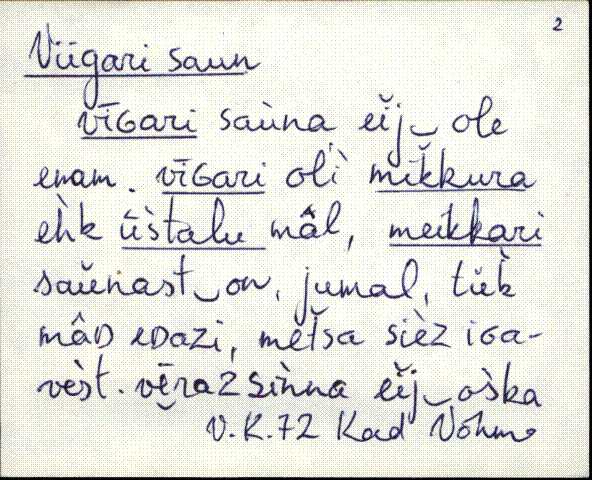 2
Viigari saun
vīGari saùna, eĭj‿ ole
enam. vīGari oli mĭkkura
ehk ǖstalu mâl, meikkari
saŭnast‿on, jumal, tŭk̀
mâD eDazi, mĕtsa sièz iGa-
vèst. vē̬raz sìnna eĭj‿ oška
V.K.72 Kad Võhma